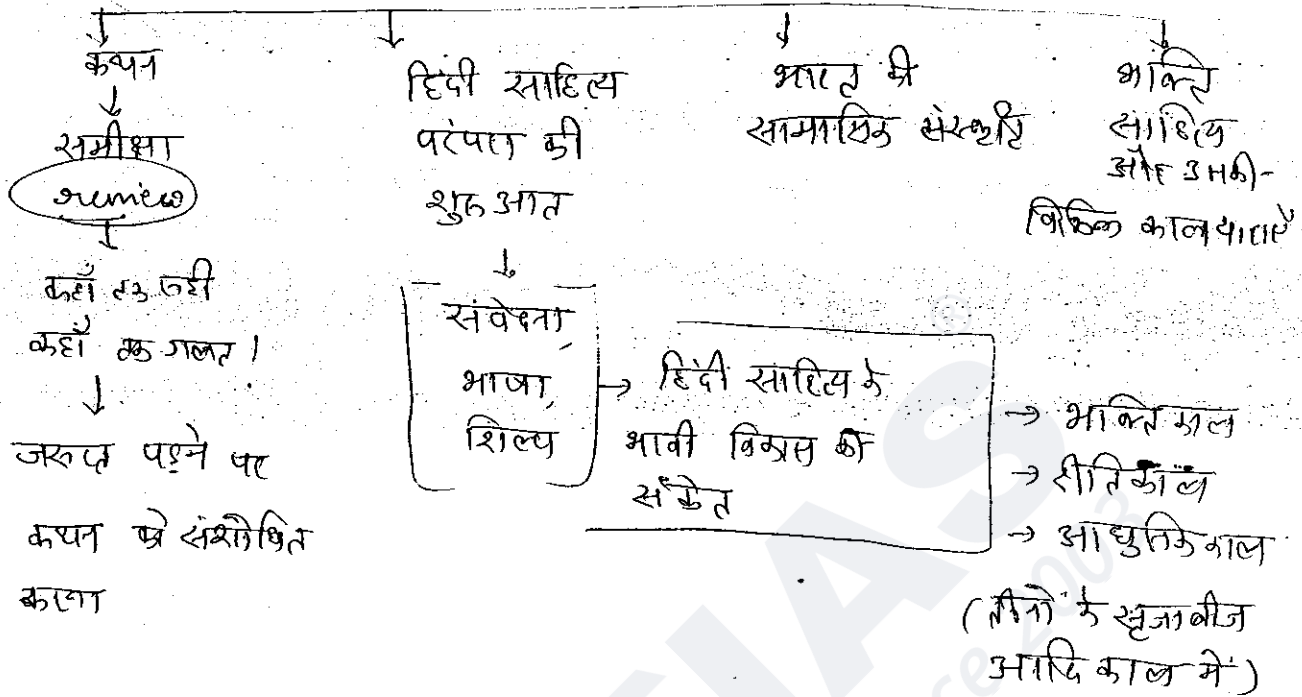 कथन
समीक्षा
review
कहाँ तक सही
कहाँ तक गलत।
जरूरत पड़ने पर
कथन को संशोधित
करना
हिंदी साहित्य
परंपरा की
शुरुआत
संवेदना,
भाषा,
शिल्प
हिंदी साहित्य के
भावी विकास को
संकेत
भारत की
सामासिक संस्कृति
भक्ति
साहित्य
और उसकी
काव्यधाराएँ
भक्तिकाल
रीतिकाल
आधुनिक काल
(तीनों के सृजनबीज
आदिकाल में)
IAS
ce 2003